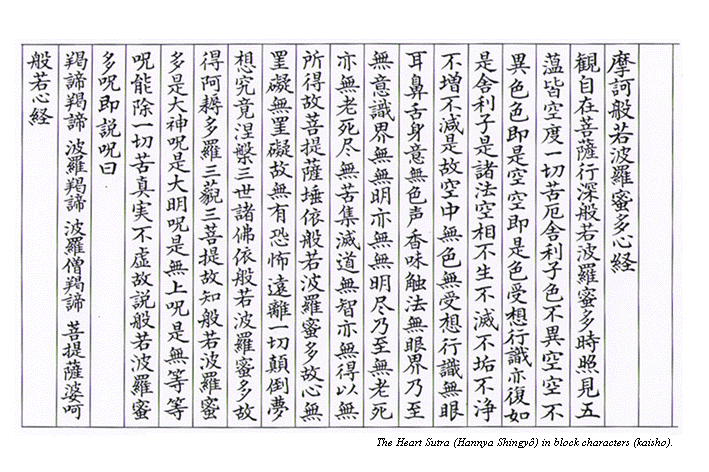 摩訶般若波羅蜜多心経
観自在菩薩行深般若波羅蜜多時照見五
薀皆空度一切苦厄舎利子色不異空空不
異色色即是空空即是色受想行識亦復如
是舎利子是諸法空相不生不滅不垢不浄
不増不減是故空中無色無受想行識無眼
耳鼻舌身意無色声香味触法無眼界乃至
無意識界無無明亦無無明尽乃至無老死
亦無老死尽無苦集滅道無智亦無得以無
所得故菩提薩埵依般若波羅蜜多故心無
罣礙無罣礙故無有恐怖遠離一切顛倒夢
想究竟涅槃三世諸佛依般若波羅蜜多故
得阿耨多羅三藐三菩提故知般若波羅蜜
多是大神呪是大明呪是無上呪是無等等
呪能除一切苦真実不虚故説般若波羅蜜
多呪即説呪曰
羯諦羯諦 波羅羯諦 波羅僧羯諦 菩提薩婆呵
般若心経
The Heart Sutra (Hannya Shingyô) in block characters (kaisho).